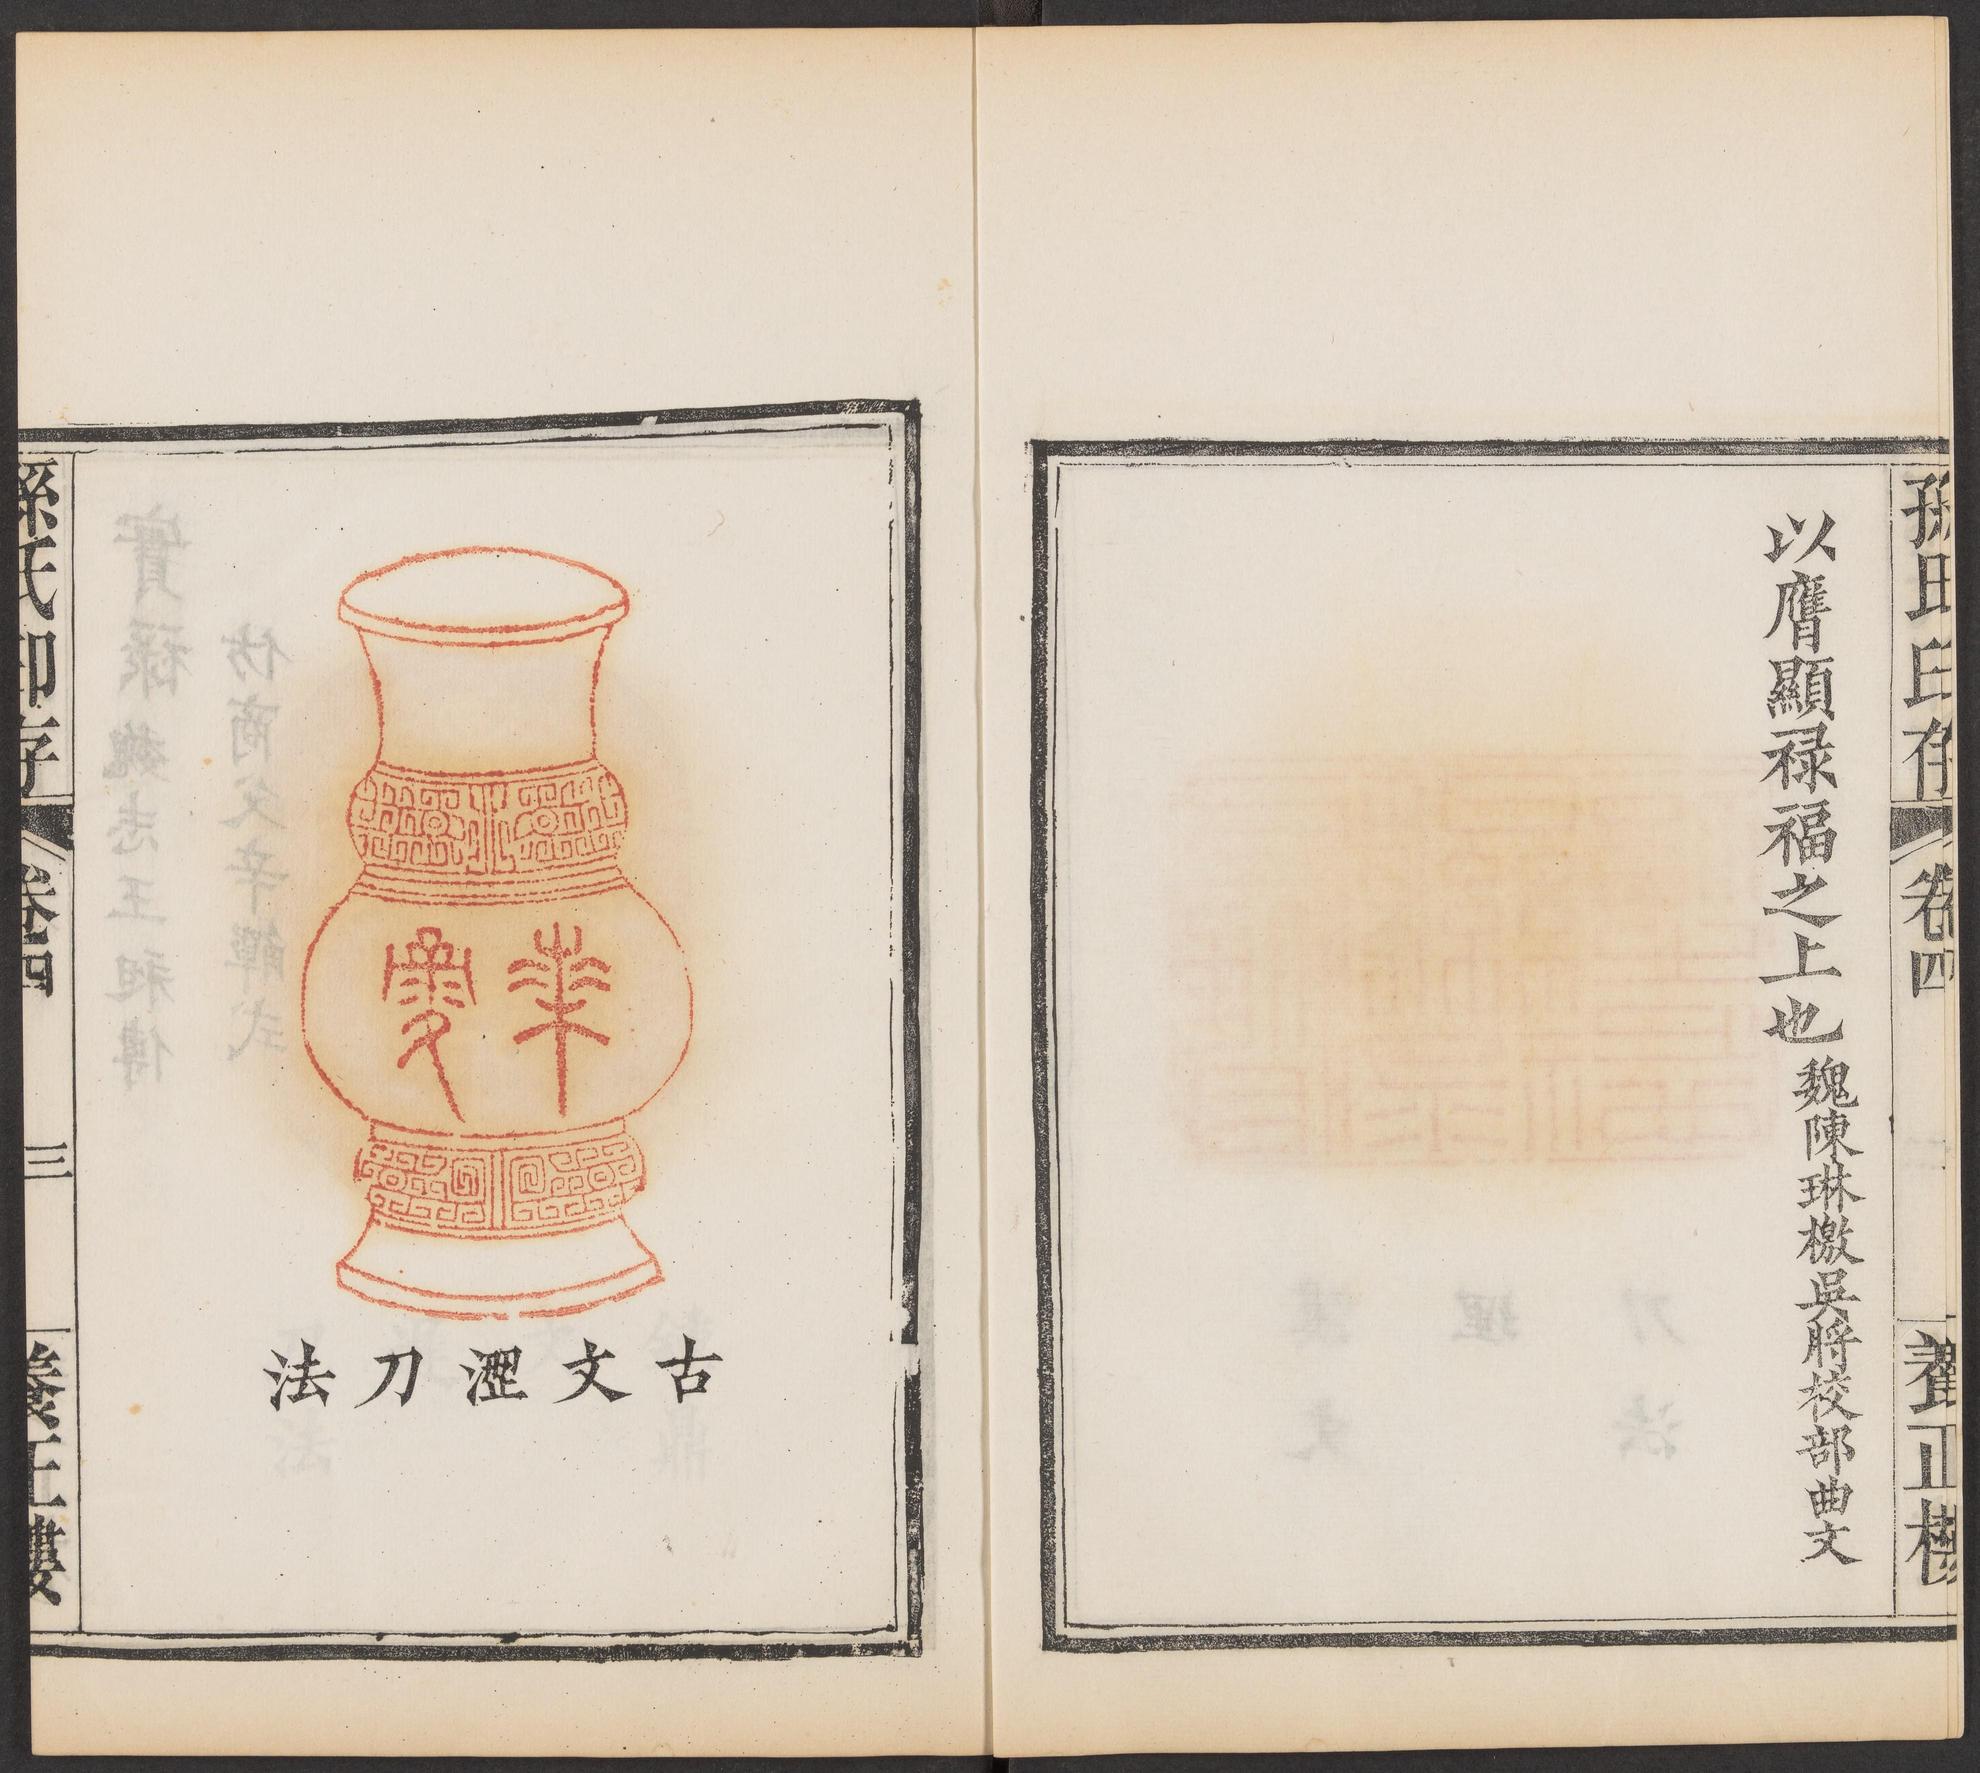 孫氏印存 卷四 養正樓
以膺顯禄福之上也 魏陳琳檄吳將校部曲文
古文澀刀法
孫氏印存 卷四 三 養正樓